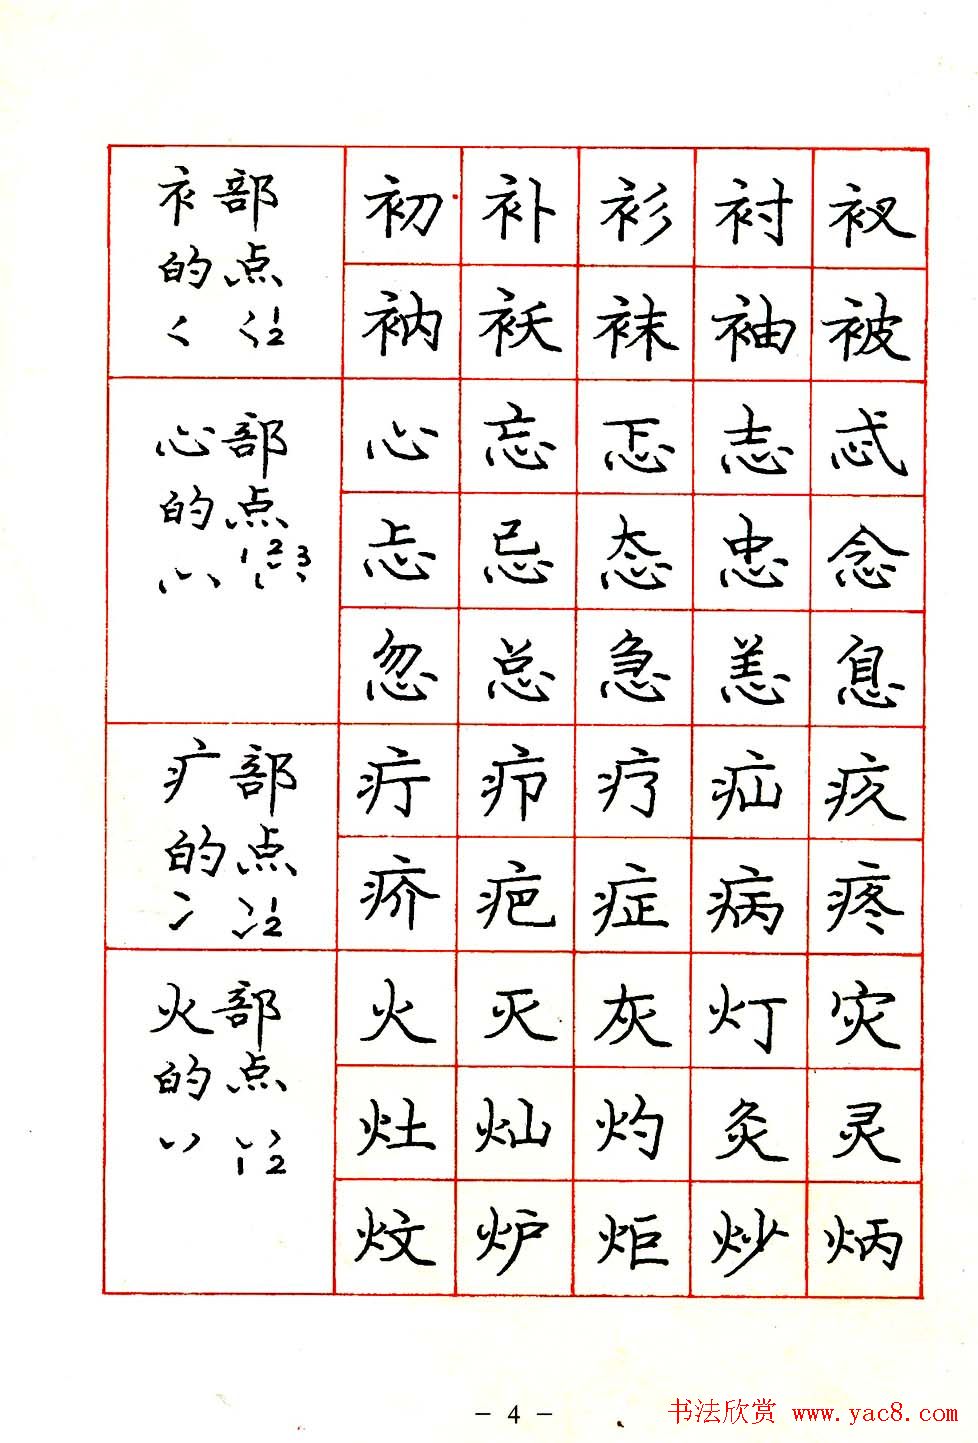 衤部
的点
1
2
初 补 衫 衬 衩
衲 袄 袜 袖 被
心部
的点
1 2 3
心 忘 忑 志 忒
忐 忌 态 忠 念
忽 总 急 恙 息
疒部
的点
1
2
疔 疖 疗 疝 疾
疥 疤 症 病 疼
火部
的点
1 2
火 灭 灰 灯 灾
灶 灿 灼 灸 灵
炆 炉 炬 炒 炳
- 4 -
书法欣赏 www.yac8.com